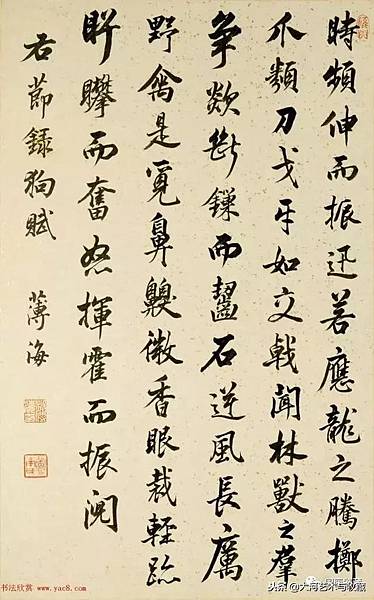 時頻伸而振迅若應龍之騰擲
爪類刀戈牙如交戟聞林獸之羣
爭欻斷鏁而齧石逆風長厲
野禽是覓鼻齅微香眼裁輕跡
而奮怒揮霍而振
右節錄狗賦 薄海
书法欣赏 www.yac8.com
头条@大河艺术与收藏